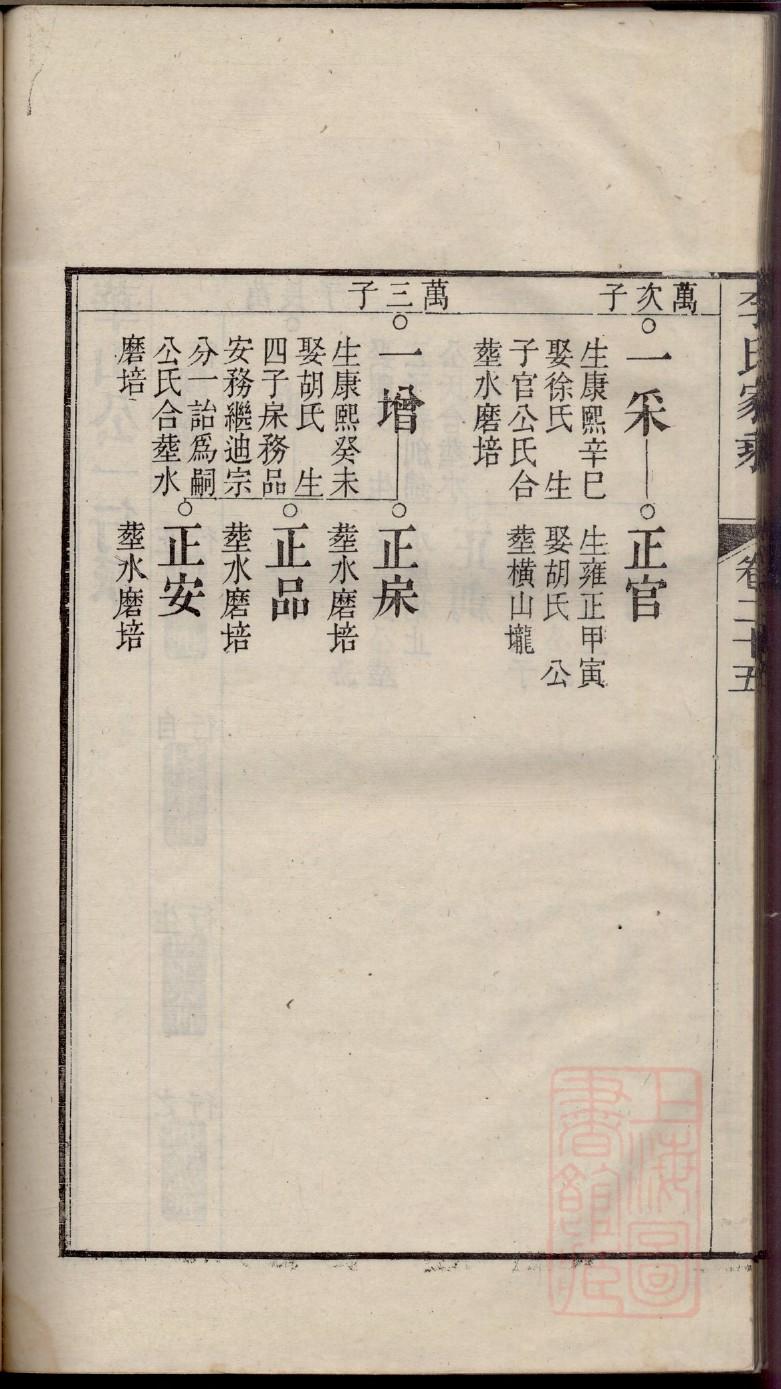 李氏家乘
卷二十五
萬次子
一采
生康熙辛巳
娶徐氏 生
子官公氏合
塟水磨培
正官
生雍正甲寅
娶胡氏 公
塟橫山壠
萬三子
一增
生康熙癸未
娶胡氏 生
四子床務品
安務繼迪宗
分一詒爲嗣
公氏合塟水
磨培
正床
塟水磨培
正品
塟水磨培
正安
塟水磨培
上海圖書館臧